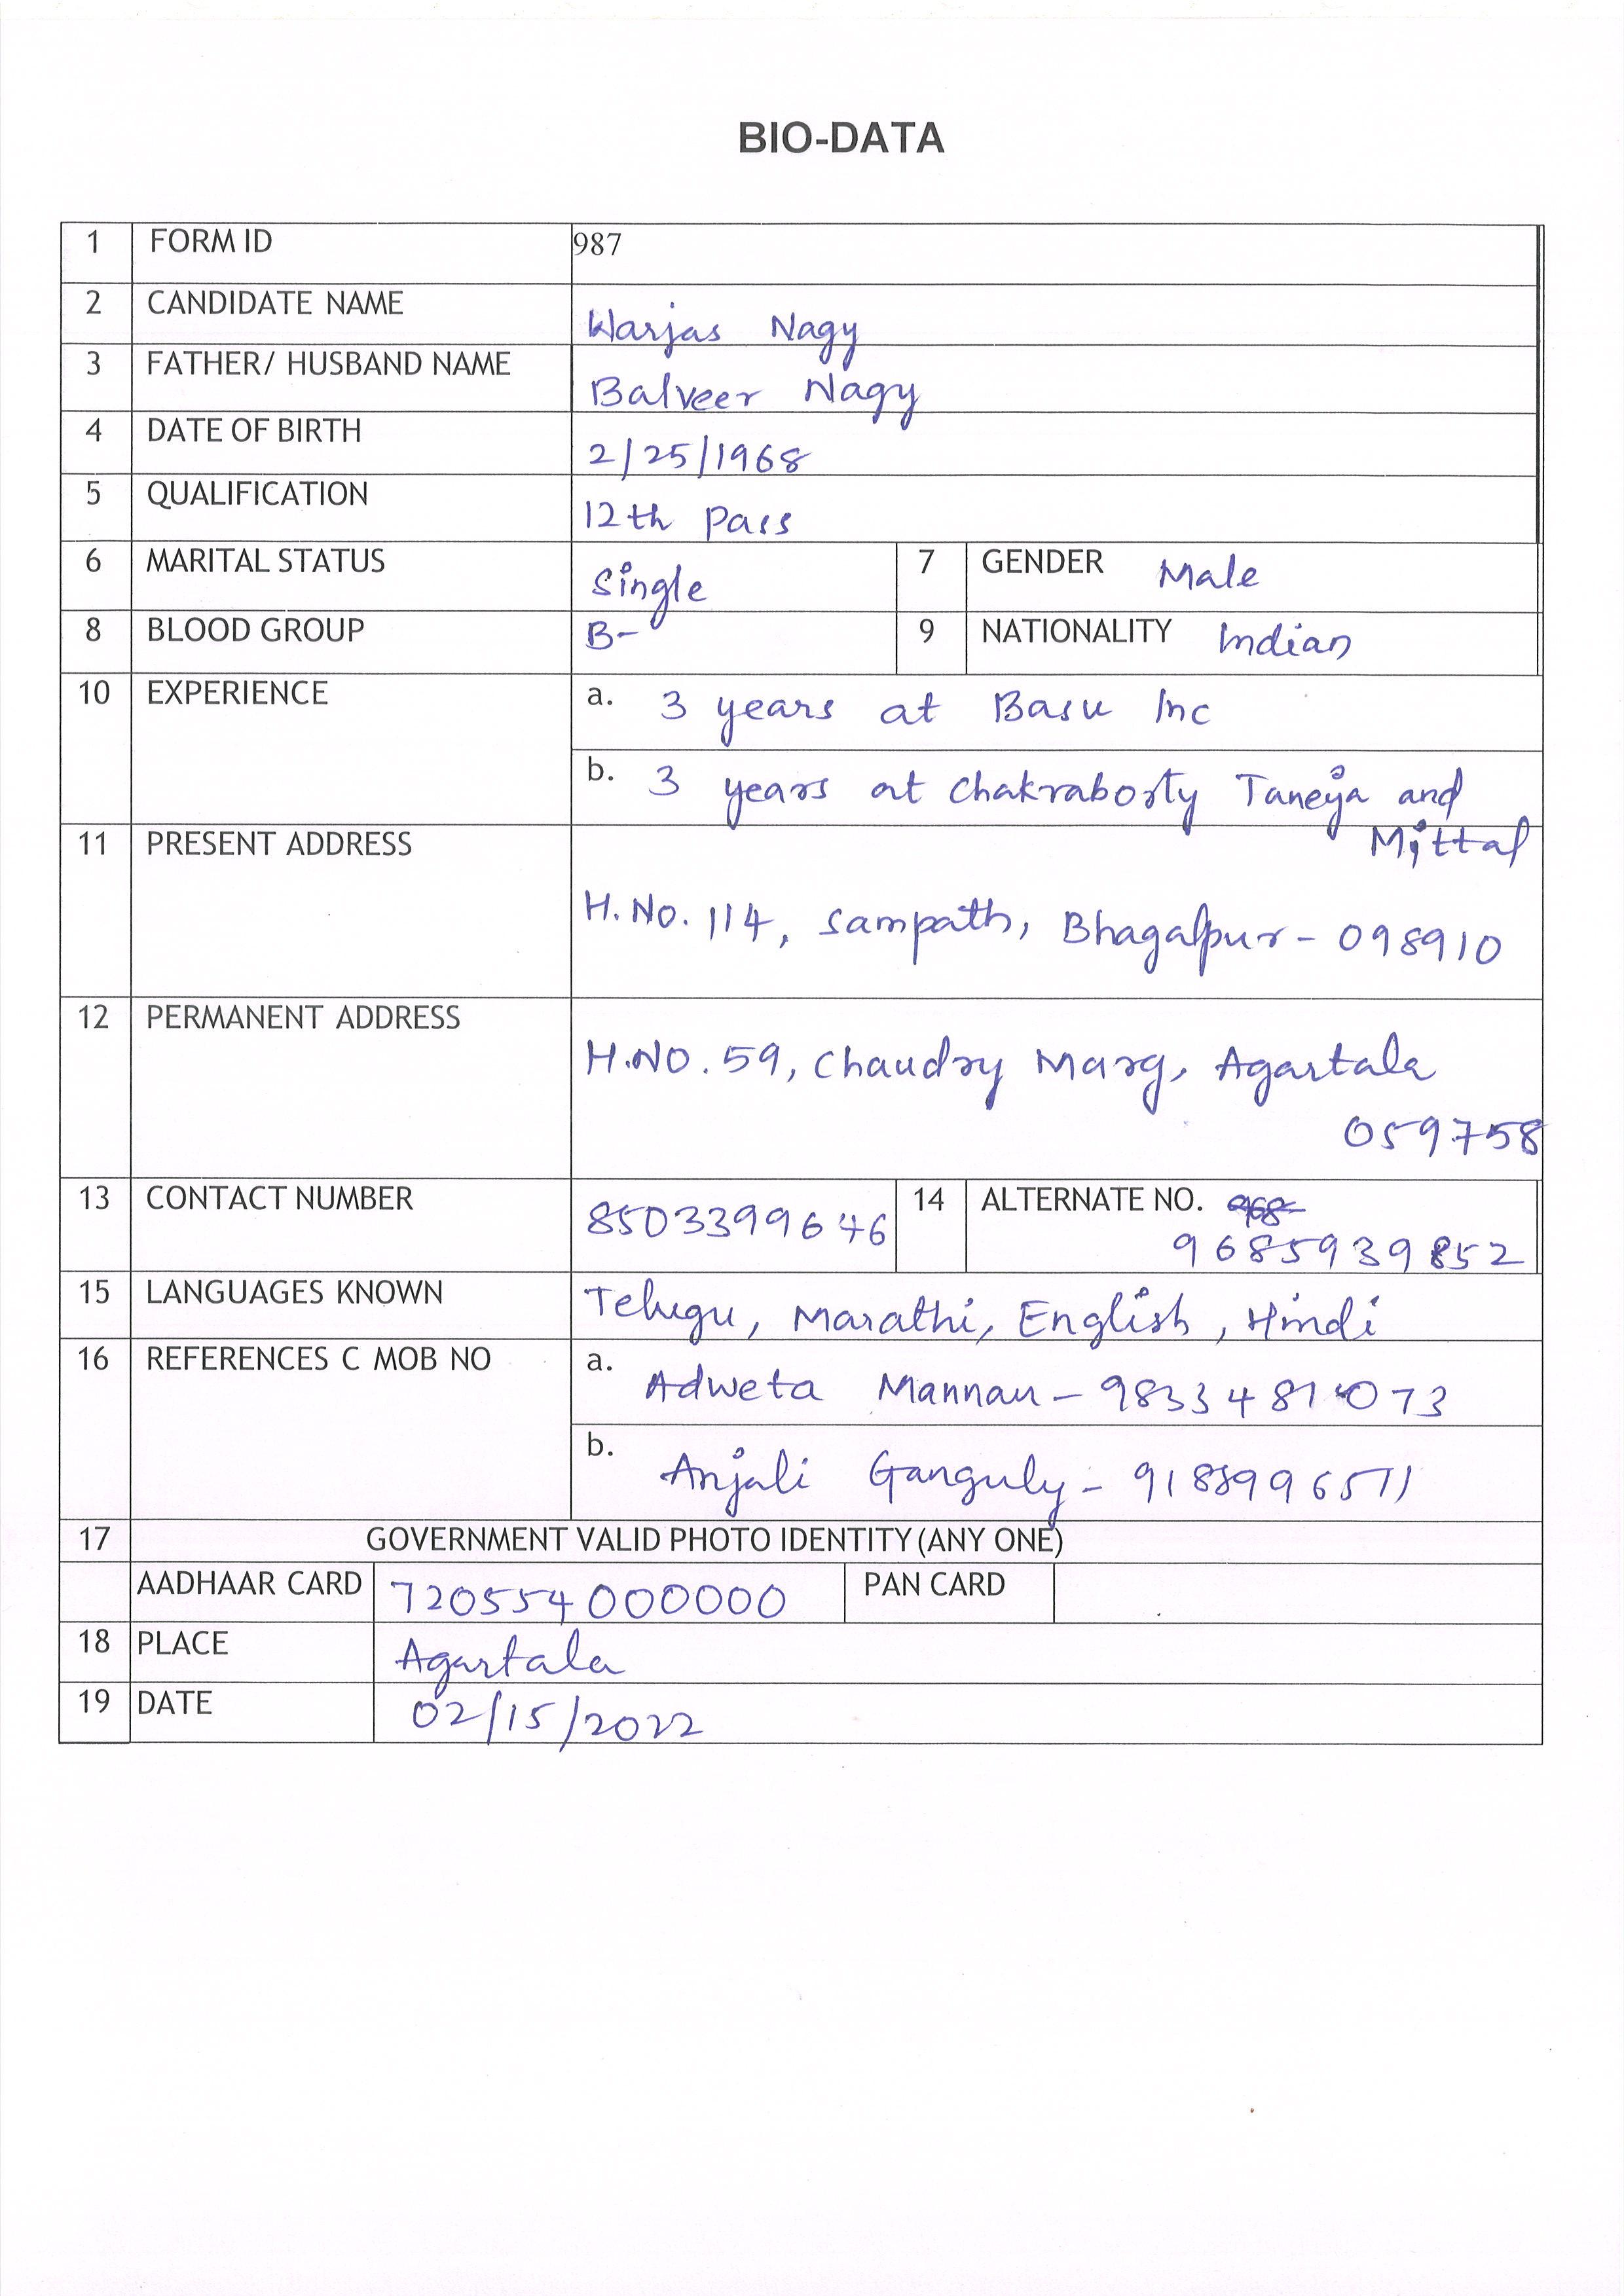 BIO-DATA
1 FORM ID 987
2 CANDIDATE NAME Warjas Nagy
3 FATHER/ HUSBAND NAME Balveer Nagy
4 DATE OF BIRTH 2/25/1968
5 QUALIFICATION 12th Pass
6 MARITAL STATUS Single 7 GENDER Male
8 BLOOD GROUP B- 9 NATIONALITY Indian
10 EXPERIENCE a. 3 years at Basu Inc
b. 3 years at Chakraborty Taneja and
Mittal
11 PRESENT ADDRESS
H.No. 114, Sampath, Bhagalpur - 098910
12 PERMANENT ADDRESS
H.NO. 59, Chaudry Marg, Agartala
059758
13 CONTACT NUMBER 8503399646 14 ALTERNATE NO.
9685939852
15 LANGUAGES KNOWN Telugu, Marathi, English, Hindi
16 REFERENCES C MOB NO a. Adweta Mannan - 9833481073
b. Anjali Ganguly - 9188996511
17 GOVERNMENT VALID PHOTO IDENTITY (ANY ONE)
AADHAAR CARD 720554000000 PAN CARD
18 PLACE Agartala
19 DATE 02/15/2022